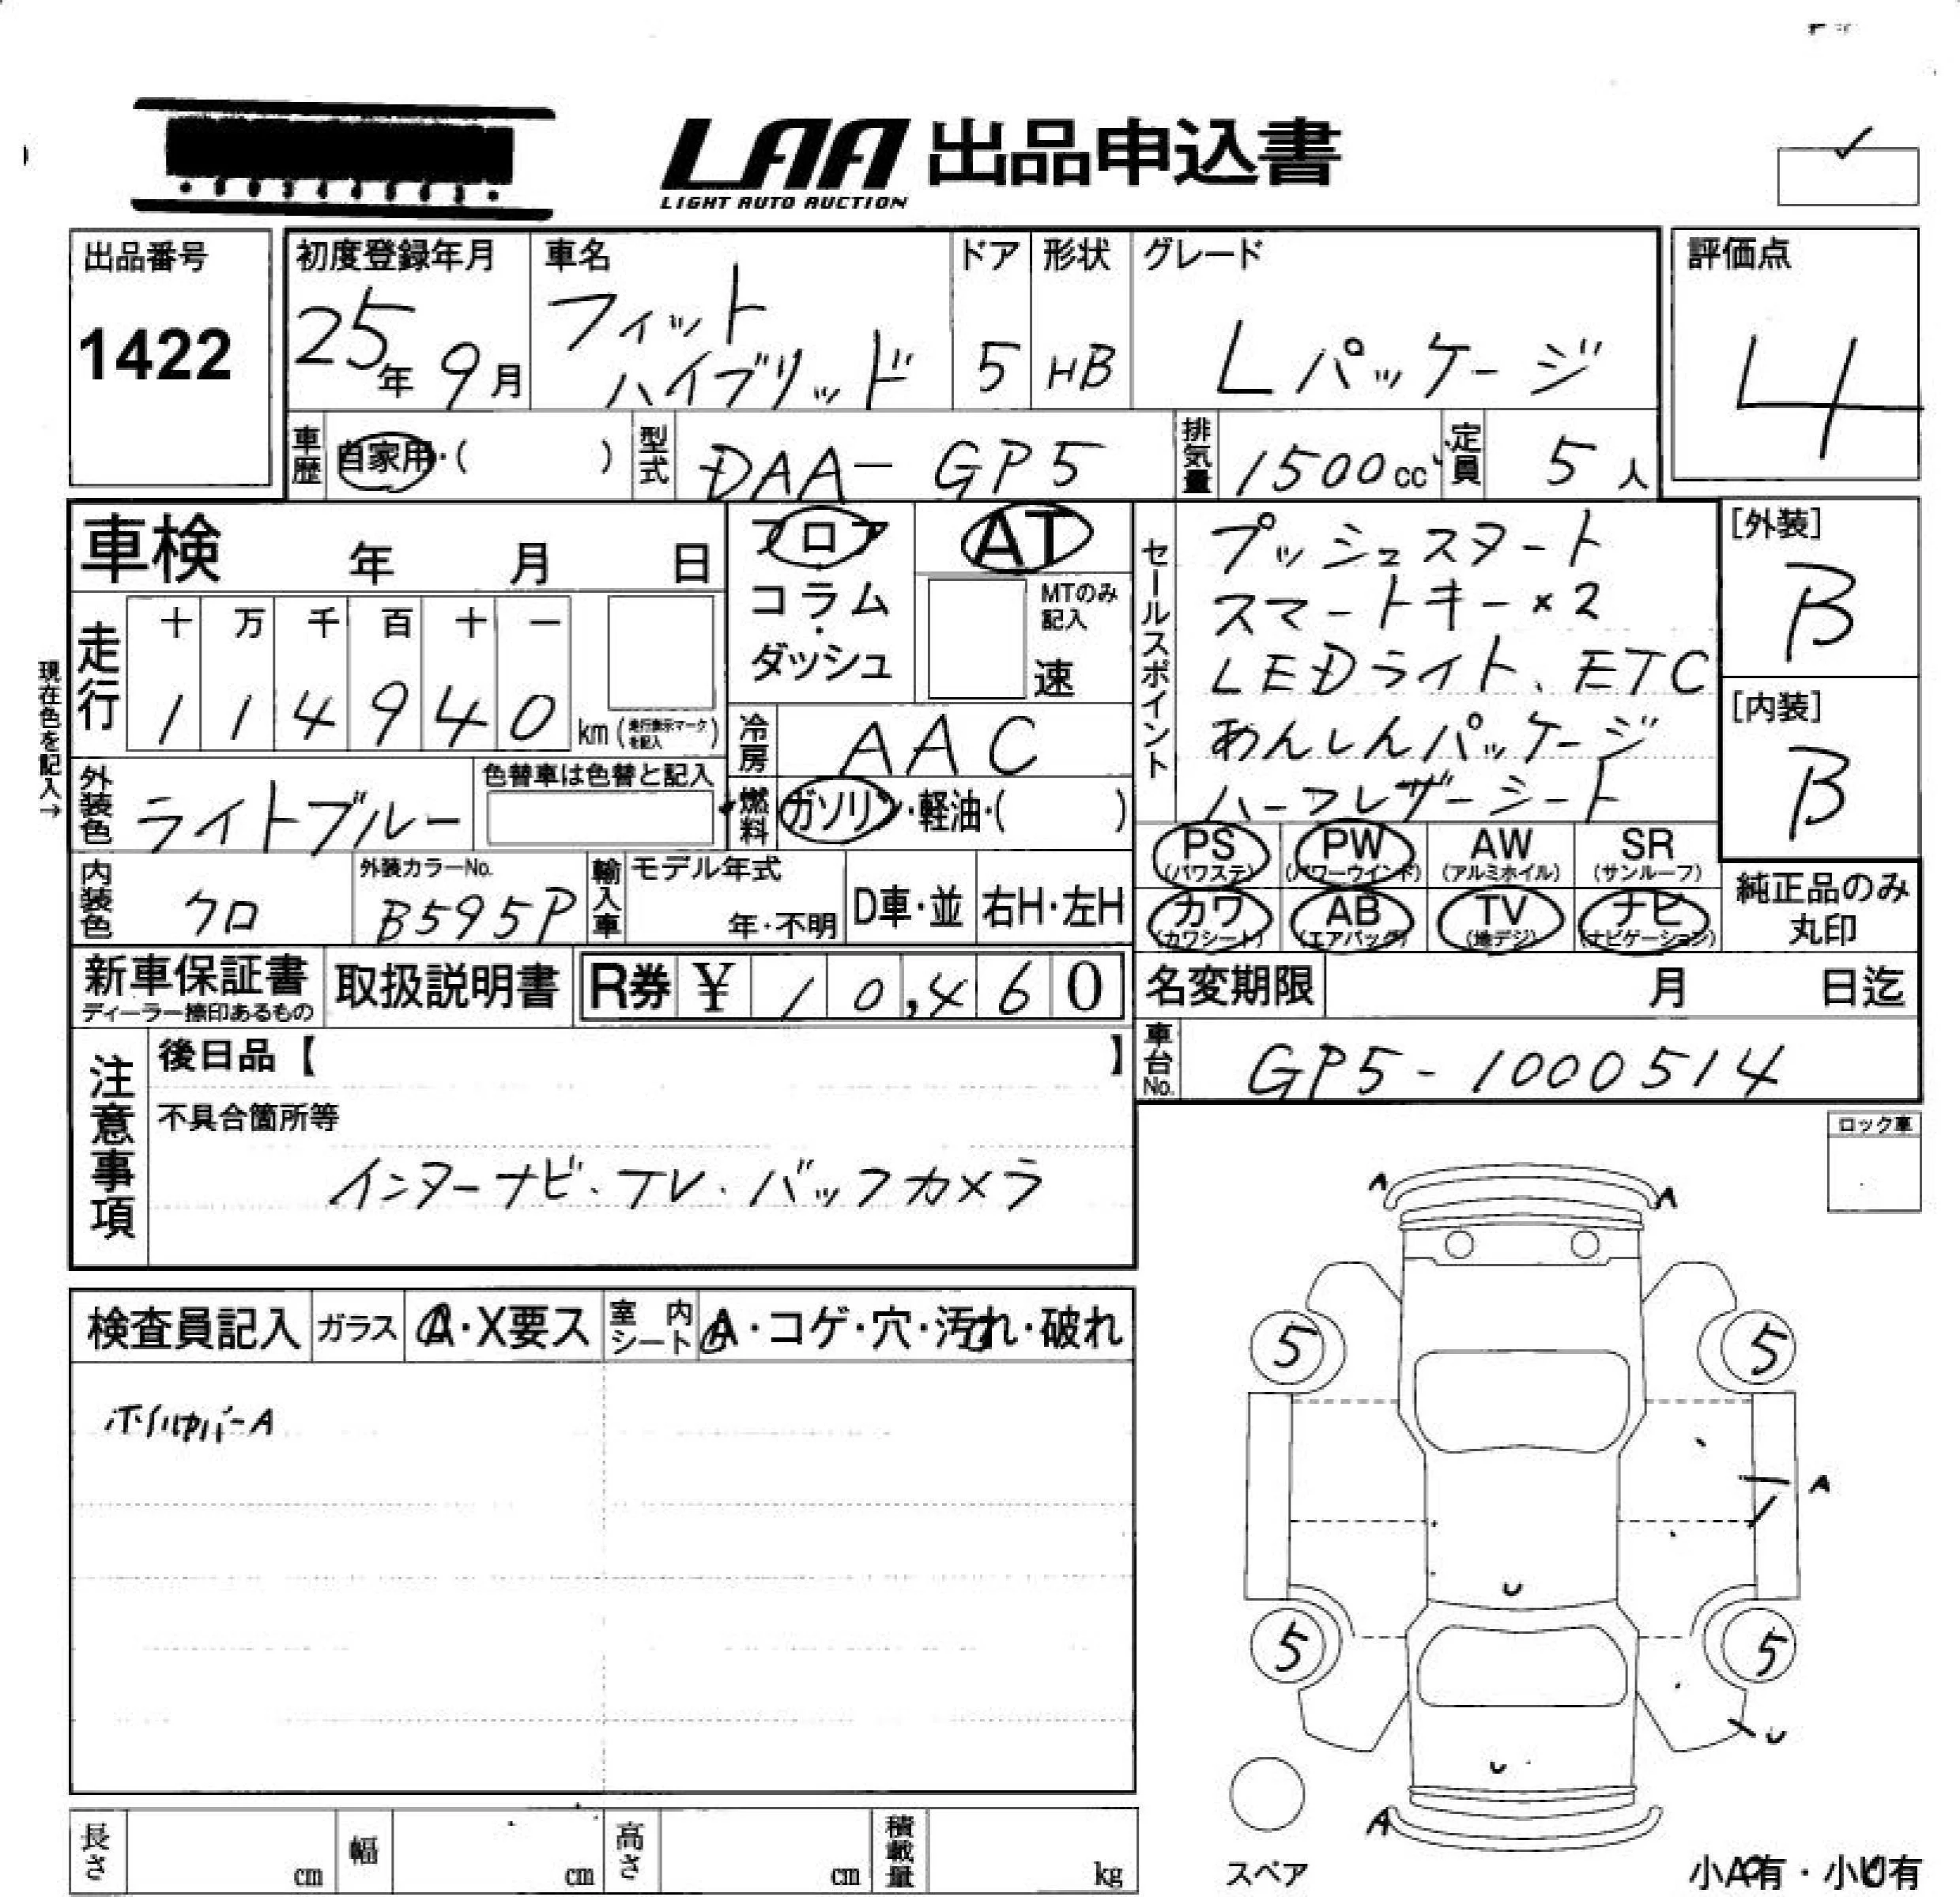 LAA 出品申込書
LIGHT AUTO AUCTION
出品番号
1422
初度登録年月
25年 9月
車名
フィット
ハイブリッド
ドア
5
形状
HB
グレード
Lパッケージ
評価点
4
車歴 自家用・( )
型式 DAA-GP5
排気量 1500cc
定員 5人
車検 年 月 日
フロア・コラム・ダッシュ
AT
MTのみ記入
速
セールスポイント
プッシュスタート
スマートキー×2
LEDライト、ETC
あんしんパッケージ
ハーフレザーシート
[外装]
B
[内装]
B
現在色を記入→
走行 十 万 千 百 十 一
114940 km (走行表示マークを記入)
冷房 AAC
外装色 ライトブルー
色替車は色替と記入
燃料 ガソリン・軽油・( )
PS (パワステ)
PW (パワーウインド)
AW (アルミホイル)
SR (サンルーフ)
カワ (カワシート)
AB (エアバッグ)
TV (地デジ)
ナビ (ナビゲーション)
純正品のみ丸印
内装色 クロ
外装カラーNo. B595P
輸入車 モデル年式 年・不明
D車・並 右H・左H
新車保証書
ディーラー捺印あるもの
取扱説明書
R券 ¥ 10,460
名変期限 月 日迄
車台No. GP5-1000514
注意事項
後日品【 】
不具合箇所等
インターナビ、TV、バックカメラ
ロック車
検査員記入 ガラス A・X要ス 室内シート A・コゲ・穴・汚れ・破れ
ホイルカバーA
A A
5 5
A
U
5 5
U
U
A
スペア
小A有・小U有
長さ cm 幅 cm 高さ cm 積載量 kg